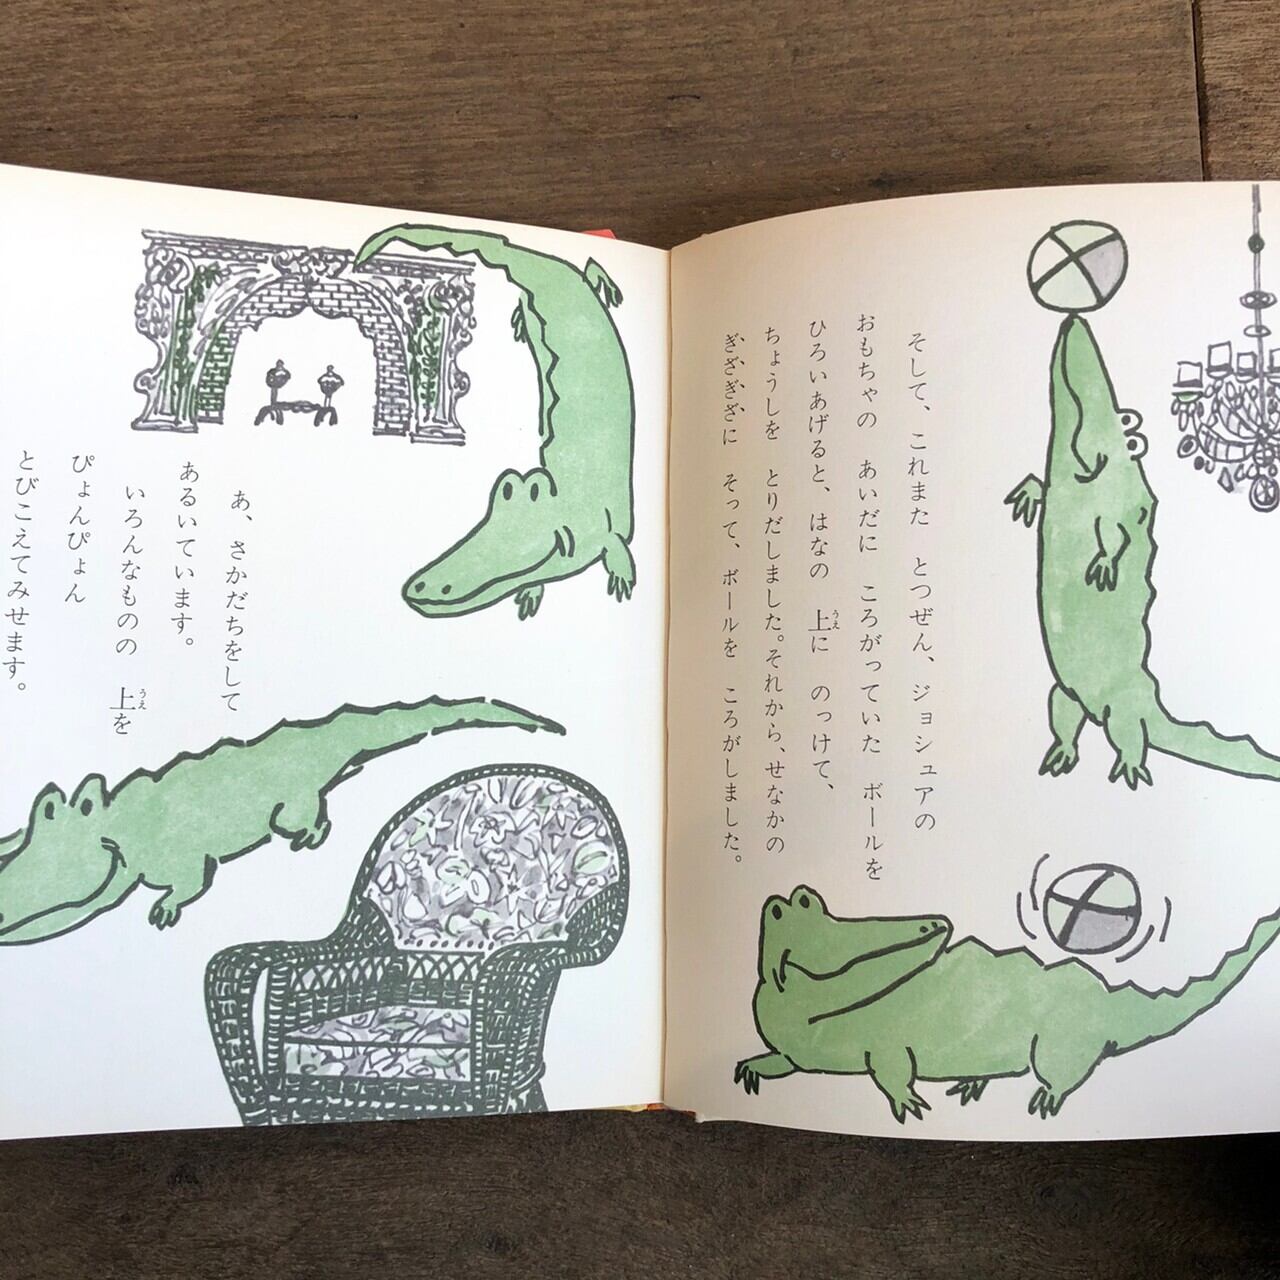 そして、これまた　とつぜん、ジョシュアの
おもちゃの　あいだに　ころがっていた　ボールを
ひろいあげると、はなの　上に　のっけて、
ちょうしを　とりだしました。それから、せなかの
ぎざぎざに　そって、ボールを　ころがしました。
あ、さかだちをして
あるいています。
いろんなものの　上を
ぴょんぴょん
とびこえてみせます。